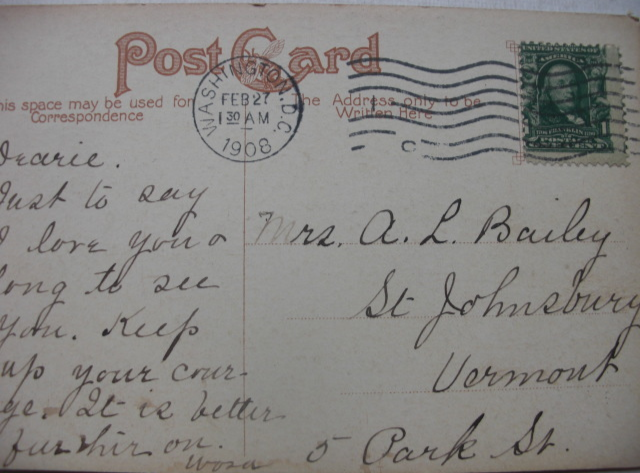 Post Card
his space may be used for
Correspondence
The Address only to be
Written Here
WASHINGTON, D.C.
FEB 27
1 30 AM
1908
C
UNITED STATES OF
AMERICA
1
Dearie.
Just to say
I love you &
long to see
you. Keep
up your cour-
ge. It is better
further on.
Mrs. A. L. Bailey
St Johnsbury
Vermont
5 Park St.